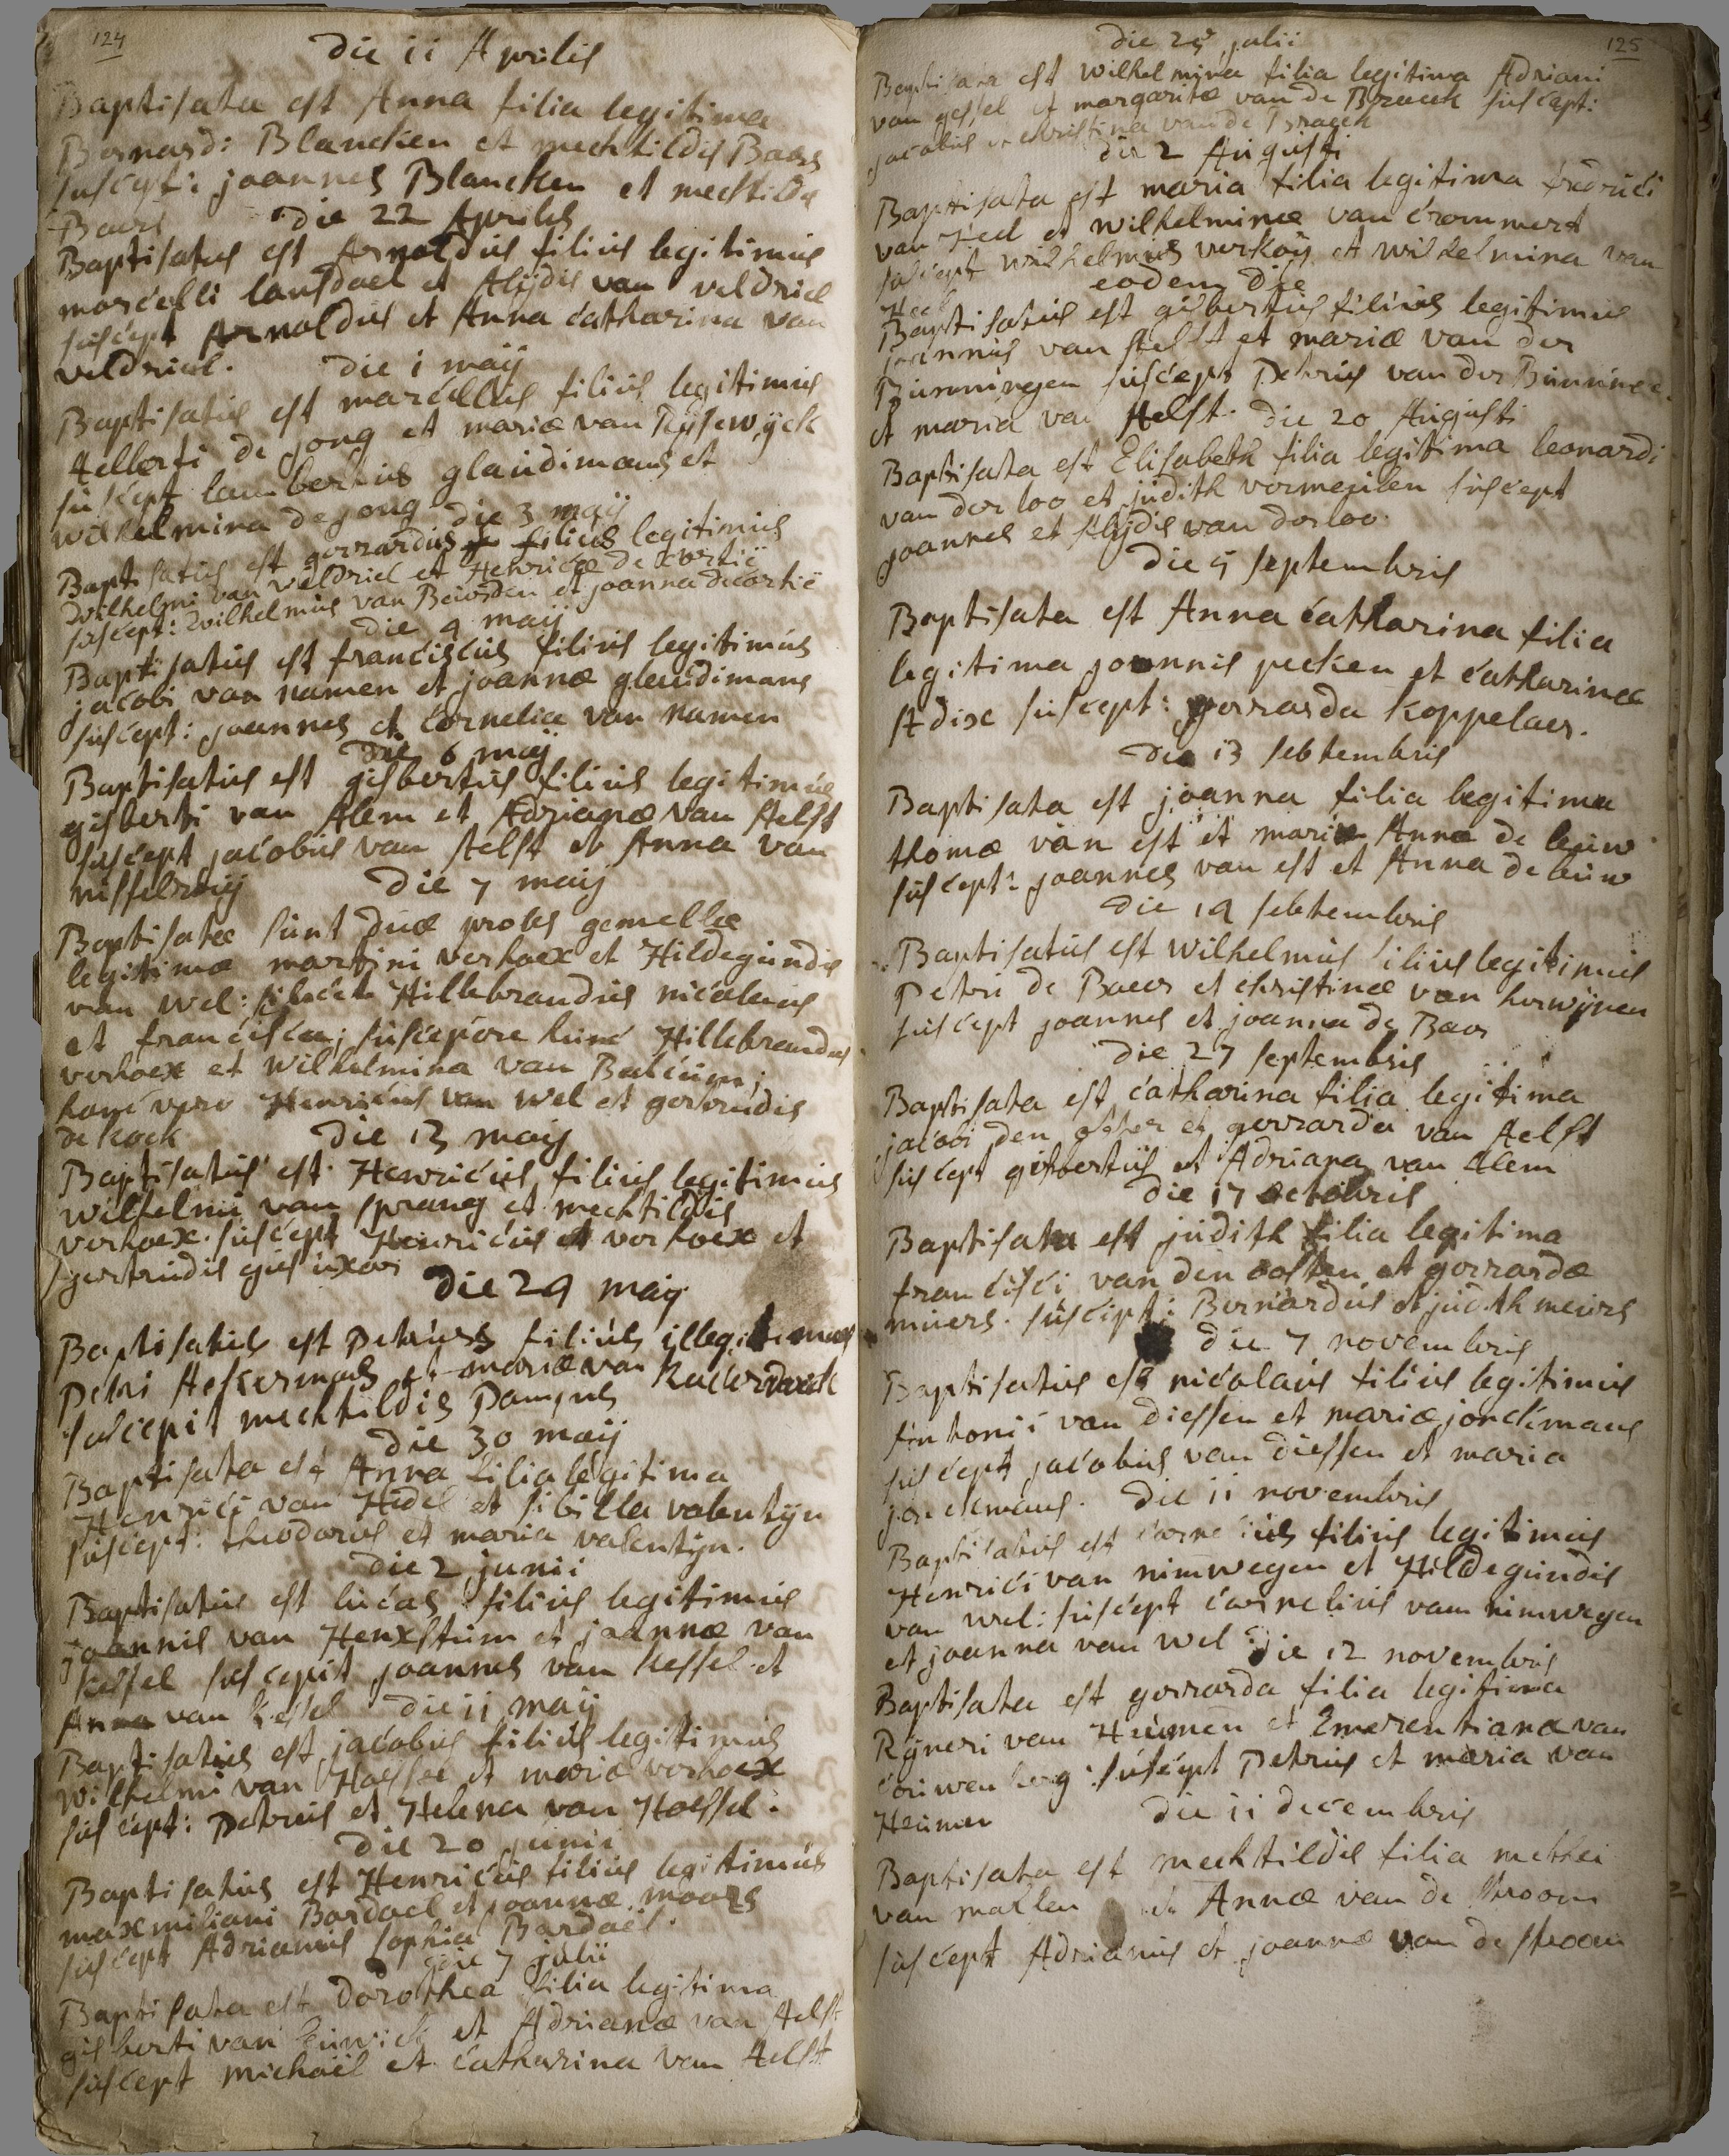 124
die 11 Aprilis
Baptisata est Anna filia legitima
Bernardi Blancken et mechtildis Baers
suscept: joannes Blancken et mechtildis
Baers die 22 Aprilis
Baptisatus est Arnoldus filius legitimus
marcelli lansdael et Alijdis van veldriel
suscept Arnoldus et Anna catharina van
veldriel. die 1 maij
Baptisatus est marcellus filius legitimus
Aellerti de jong et mariæ van Rijsewijck
suscept lambertus glaudimans et
wilhelmina de jong die 3 maij
Baptisatus est gerrardus filius legitimus
wilhelmi van veldriel et Henricæ de cortie
suscept: wilhelmus van Beusden et joanna decortie
die 4 maij
Baptisatus est franciscus filius legitimus
jacobi van namen et joannæ glaudimans
suscept: joannes et cornelia van namen
die 6 maij
Baptisatus est gisbertus filius legitimus
gisberti van Alem et Adrianæ van Aelst
suscept jacobus van Aelst et Anna van
nisselroij die 7 maij
Baptisatæ sunt duæ proles gemellæ
legitimæ martini verhoex et Hildegundis
van wel: silicet Hillebrandus nicolaus
et francisca; suscepere hunc Hillebrandus
verhoex et wilhelmina van Balcum;
hanc vero Henricus van wel et gertrudis
de kock die 13 maij
Baptisatus est Henricus filius legitimus
wilhelmi van sprang et mechtildis
verhoex. suscept Henricus et verhoex et
gertrudis ejus uxor
die 29 maij
Baptisatus est Petrus filius illegitimus
Petri Ackermans et mariæ van
suscepit mechtildis Pampus
die 30 maij
Baptisata est Anna filia legitima
Henrici van Hedel et sibilla valentijn
suscept: theodorus et maria valentijn.
die 2 junii
Baptisatus est lucas filius legitimus
joannis van Henxstum et joannæ van
kessel suscepit joannes van kessel et
Anna van kessel die 11 maij
Baptisatus est jacobus filius legitimus
wilhelmi van Hassel et mariæ verhoex
suscept: Petrus et Helena van Hassel.
die 20 junii
Baptisatus est Henricus filius legitimus
maxmiliani Bardael et joannæ moors
suscept Adrianus sophia Bardael.
die 7 julii
Baptisata est dorothea filia legitima
gisberti van et Adrianæ van Aelst
suscept michael et catharina van Aelst
125
die 25 julii
Baptisata est wilhelmina filia legitima Adriani
van gessel et margaritæ van de Braeck suscept:
jacobus et christina van de Braeck
die 2 Augusti
Baptisata est maria filia legitima fredrici
van Heel et wilhelminæ van crommert
suscept wilhelmus verkoij et wilhelmina van
Heel eodem die
Baptisatus est gisbertus filius legitimus
joannis van Aelst et mariæ van der
Bunningen suscept Petrus van der Bunninge
et maria van Aelst. die 20 Augusti
Baptisata est Elisabeth filia legitima leonardi
van der loo et judith vermeulen suscept
joannes et Alijdis van der loo.
die 5 septembris
Baptisata est Anna catharina filia
legitima joannis pecken et catharinæ
Adix suscept: gerrarda koppelaer.
die 13 sebtembris
Baptisata est joanna filia legitima
thomæ van est et mariæ Annæ de leuw
suscept: joannes van est et Anna de leuw
die 19 sebtembris
Baptisatus est wilhelmus filius legitimus
Petri de Baeer et christinæ van herwijnen
suscept joannes et joanna de Baer
die 27 septembris
Baptisata est catharina filia legitima
jacobi den otter et gerrarda van Aelst
suscept gisbertus et Adriana van Alem
die 17 octobris
Baptisata est judith filia legitima
francisci van den oosten et gerrardæ
miers. suscipt: Bernardus et judith meurs
die 7 novembris
Baptisatus est nicolaus filius legitimus
Antonii van diessen et mariæ jonckmans
suscept jacobus van diessen et maria
jonckmans. die 11 novembris
Baptisatus est cornelius filius legitimus
Henrici van nimwegen et Hildegundis
van wel: suscept cornelius van nimwegen
et joanna van wel die 12 novembris
Baptisata est gerrarda filia legitima
Rijneri van Heumen et Emerentiana van
couwenberg: suscept Petrus et maria van
Heumen die 11 decembris
Baptisata est mechtildis filia mathei
van mahlen et Annæ van de stroom
suscept Adrianus et joannæ van de stroom